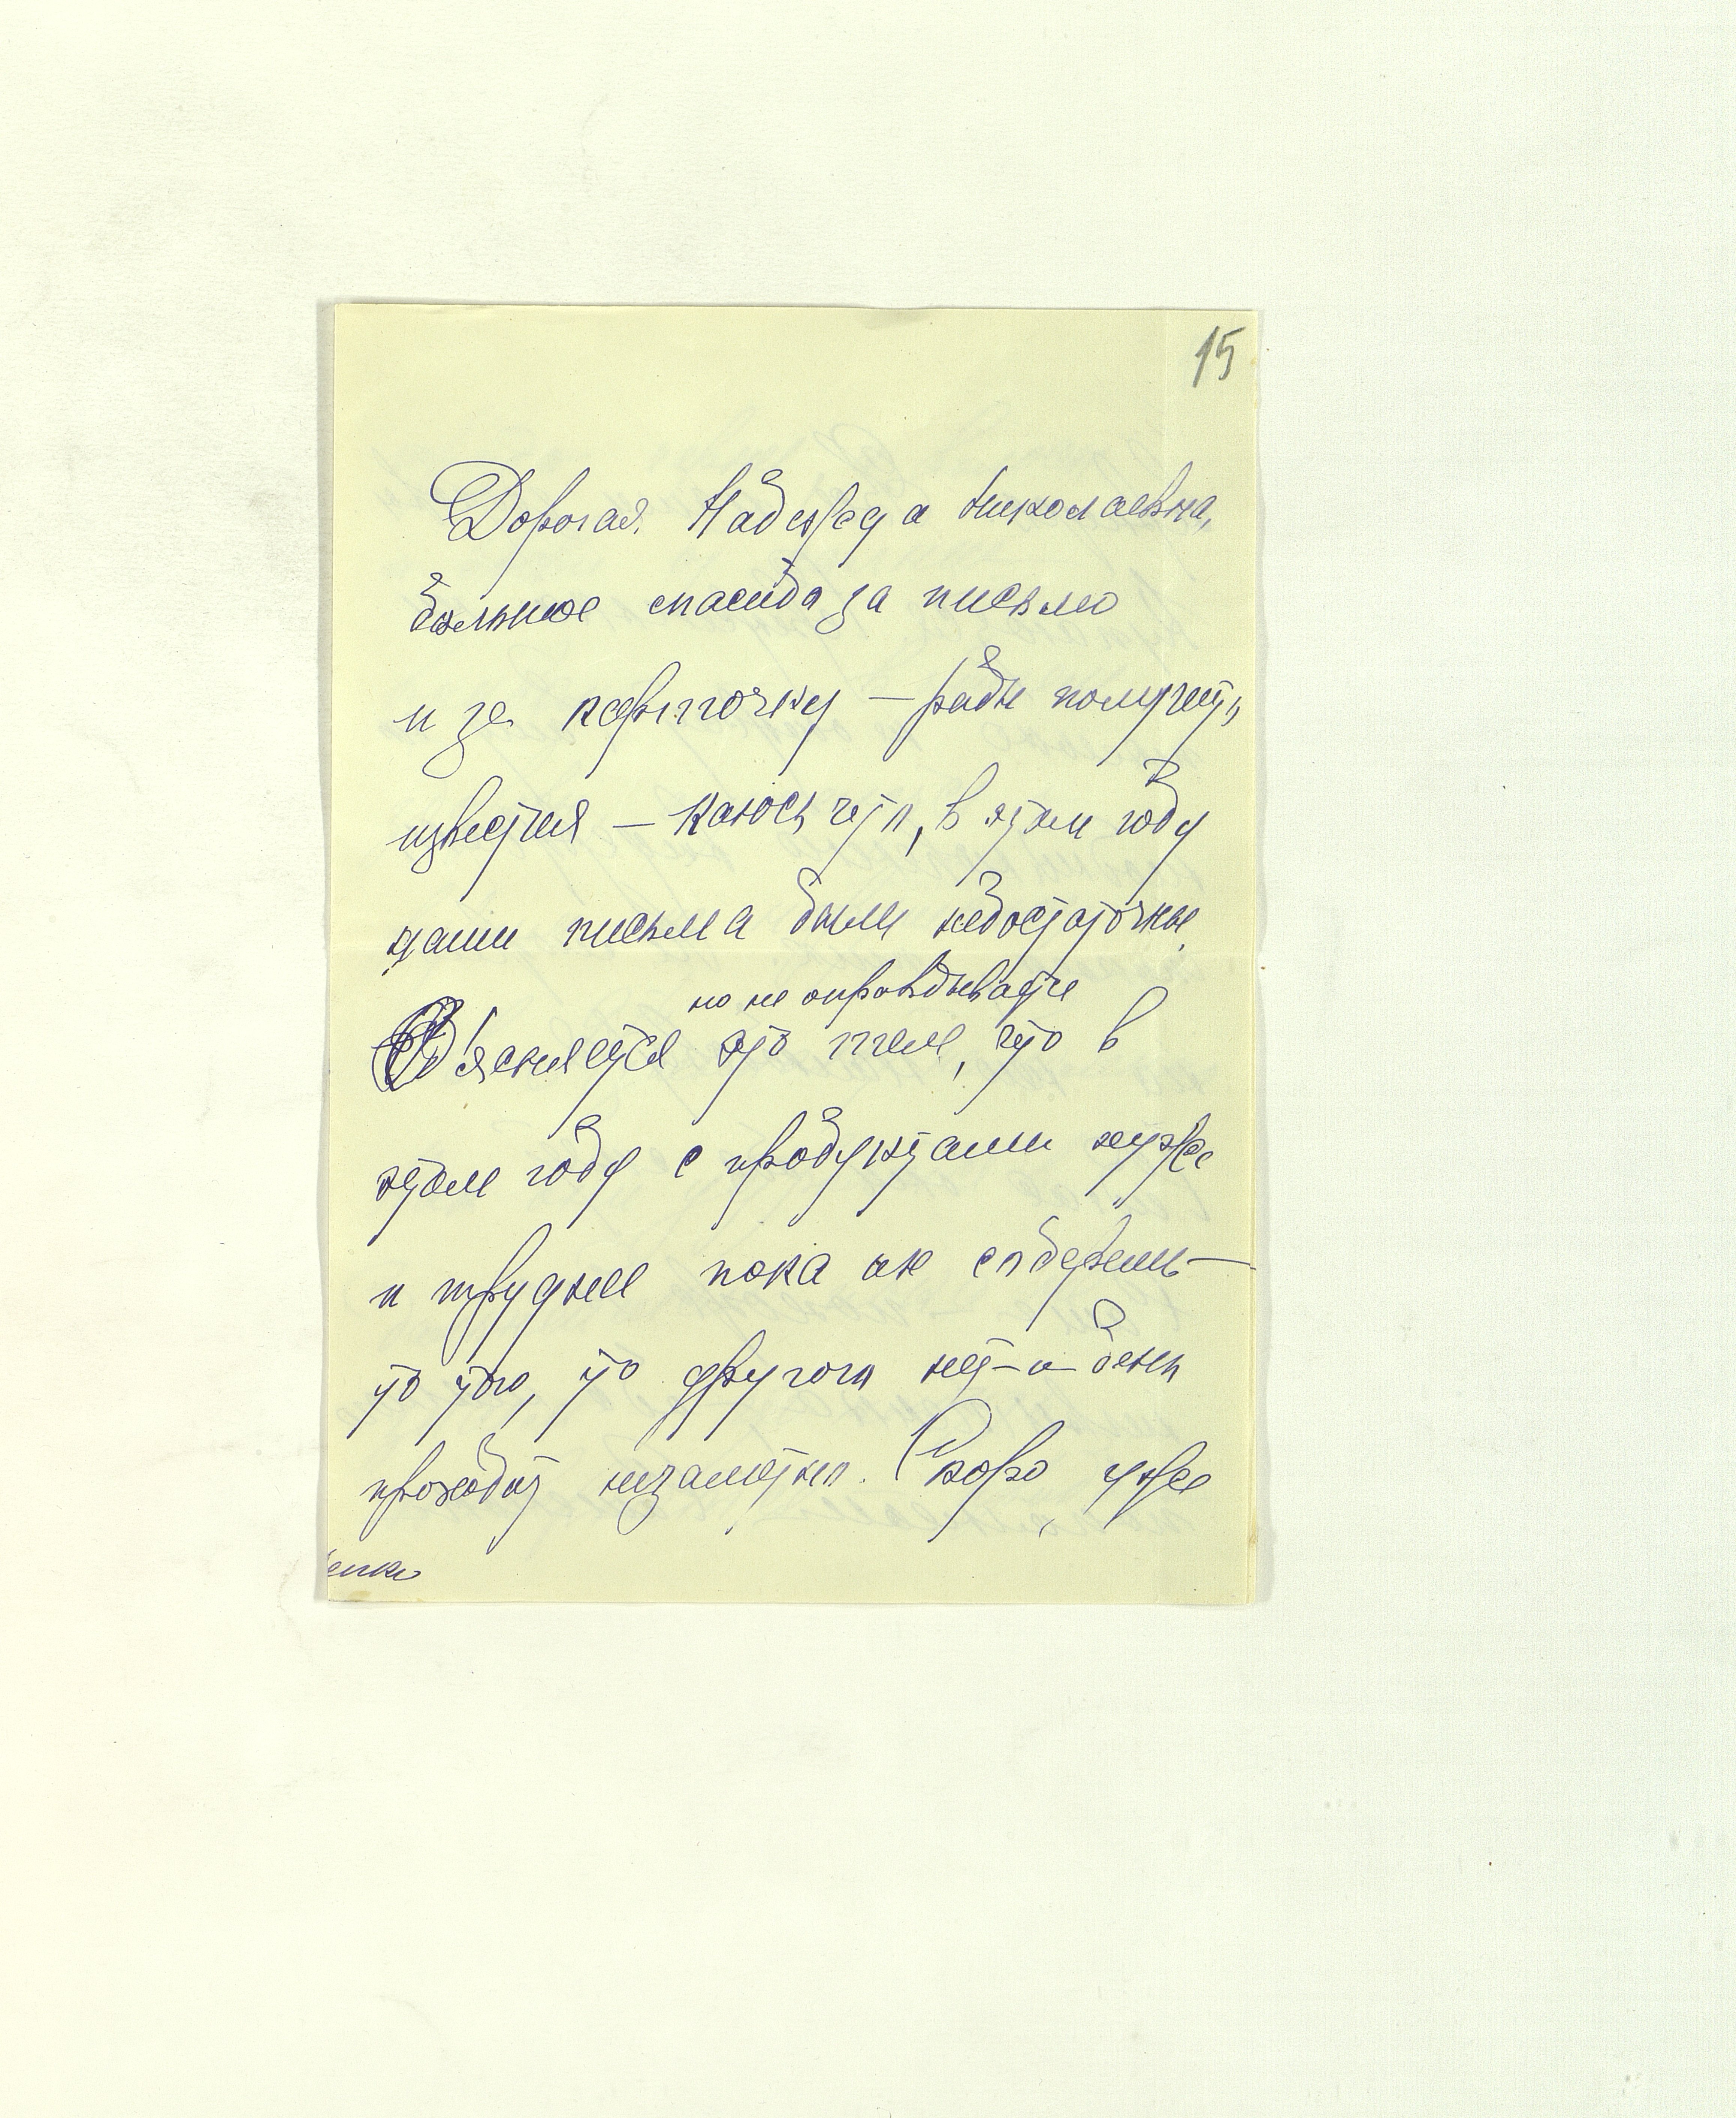 15
Дорогая Надежда Николаевна,
большое спасибо за письмо
и за карточку — рады получить
известия — каюсь что, в этом году
наши письма были недостаточные
но не оправдывается
Об'ясняется это тем, что в
этом году с продуктами хуже
и труднее пока их соберешь —
то того, то другого нет — и день
проходит незаметно. Скоро уже